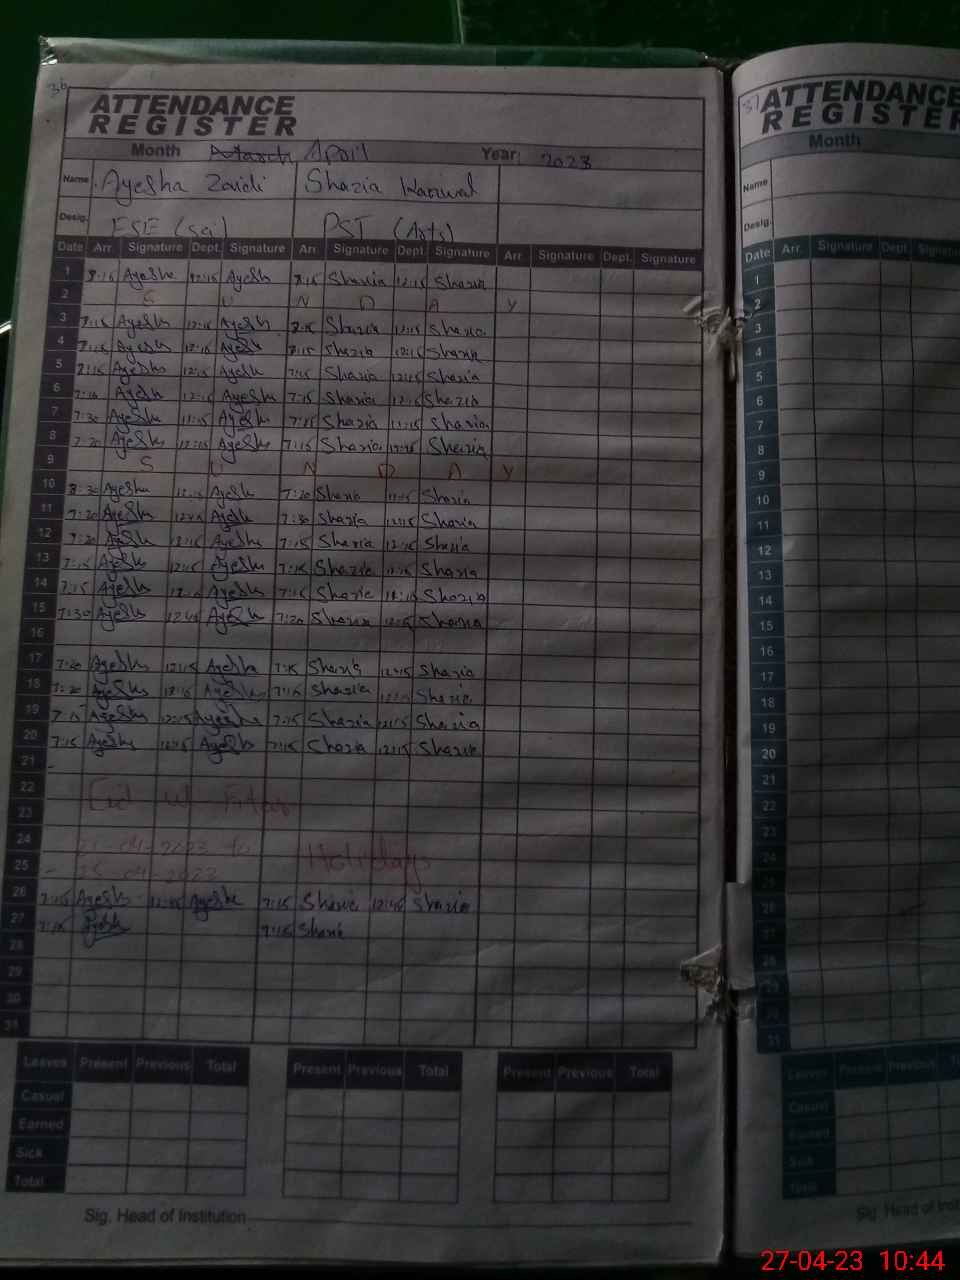 36
ATTENDANCE
REGISTER
Month March April Year 2023
Name Ayesha Zaidi Shazia Kanwal
Desig. ESE (Sci) PST (Arts)
Date Arr. Signature Dept. Signature Arr. Signature Dept. Signature Arr Signature Dept. Signature
1 8:15 Ayesha 12:15 Ayesh 8:15 Shazia 12:15 Shazia
2 S U N D A Y
3 7:15 Ayesh 12:15 Ayesh 7:15 Shazia 12:15 Shazia
4 7:15 Ayesh 12:15 Ayesh 7:15 Shazia 12:15 Shazia
5 7:15 Ayesha 12:15 Ayesh 7:15 Shazia 12:15 Shazia
6 Ayesh 12:15 Ayesha 7:15 Shazia 12:15 Shazia
7 7:30 Ayesha Ayesha 7:15 Shazia Shazia
8 7:20 Ayesha Ayesha 7:15 Shazia Shazia
9 S U N D A Y
10 8:30 Ayesha Ayesh 7:20 Shazia Shazia
11 7:20 Ayesh Ayesh 7:30 Shazia 12:15 Shazia
12 7:20 Ayesh Ayesha 7:15 Shazia 12:15 Shazia
13 7:15 Ayesha 12:15 Ayesha 7:15 Shazia Shazia
14 7:15 Ayesha Ayesha 7:15 Shazia Shazia
15 7:30 Ayesha 12:45 Ayesha 7:20 Shazia Shazia
16
17 7:20 Ayesha 12:15 Ayesha 7:15 Shazia 12:15 Shazia
18 7:20 Ayesha Ayesha 7:15 Shazia Shazia
19 7:15 Ayesha 12:15 Ayesha 7:15 Shazia 12:15 Shazia
20 7:15 Ayesha 12:15 Ayesha 7:15 Shazia 12:15 Shazia
21
22 Eid ul Fitar
23
24 21-04-2023 to Holidays
25 25-04-2023
26 7:15 Ayesh Ayesha 7:15 Shazia 12:45 Shazia
27 7:15 Ayesh 7:15 Shazia
28
29
30
31
Leaves Present Previous Total Present Previous Total Present Previous Total
Casual
Earned
Sick
Total
Sig. Head of Institution
37
ATTENDANCE
REGISTER
Month
Name
Desig.
Date Arr. Signature Dept.
1
2
3
4
5
6
7
8
9
10
11
12
13
14
15
16
17
18
19
20
21
22
23
24
25
26
27
28
29
30
31
Leaves Present Previous
Casual
Earned
Sick
Total
Sig. Head of
27-04-23 10:44